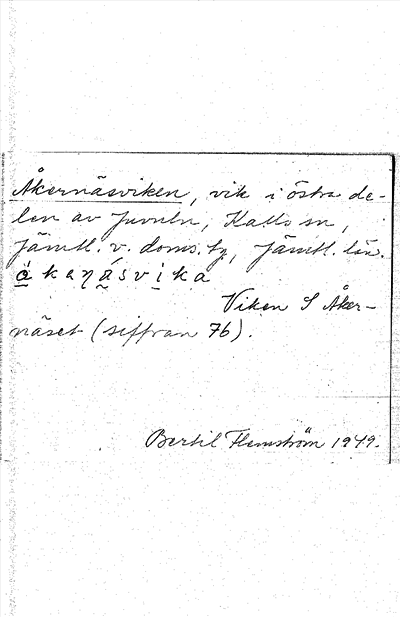 Åkernäsviken, vik i östra de-
len av Juvuln, Kalls sn,
Jämtl. v. doms. tg, Jämtl. län.
å k e ṇ ä s v i k a
Viken S Åker-
näset (siffran 76).
Bertil Flemström 1949.